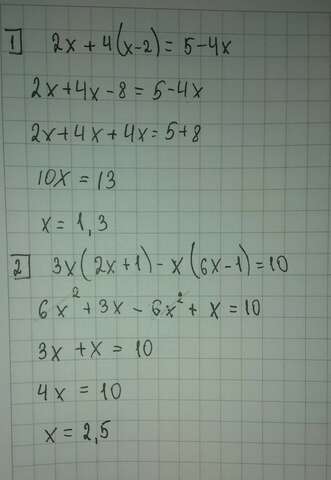 1 2x + 4(x-2) = 5-4x
2x+4x-8 = 5-4x
2x+4x+4x=5+8
10x = 13
x = 1,3
2 3x(2x+1) - x(6x-1)=10
6x² + 3x - 6x² + x = 10
3x + x = 10
4x = 10
x = 2,5